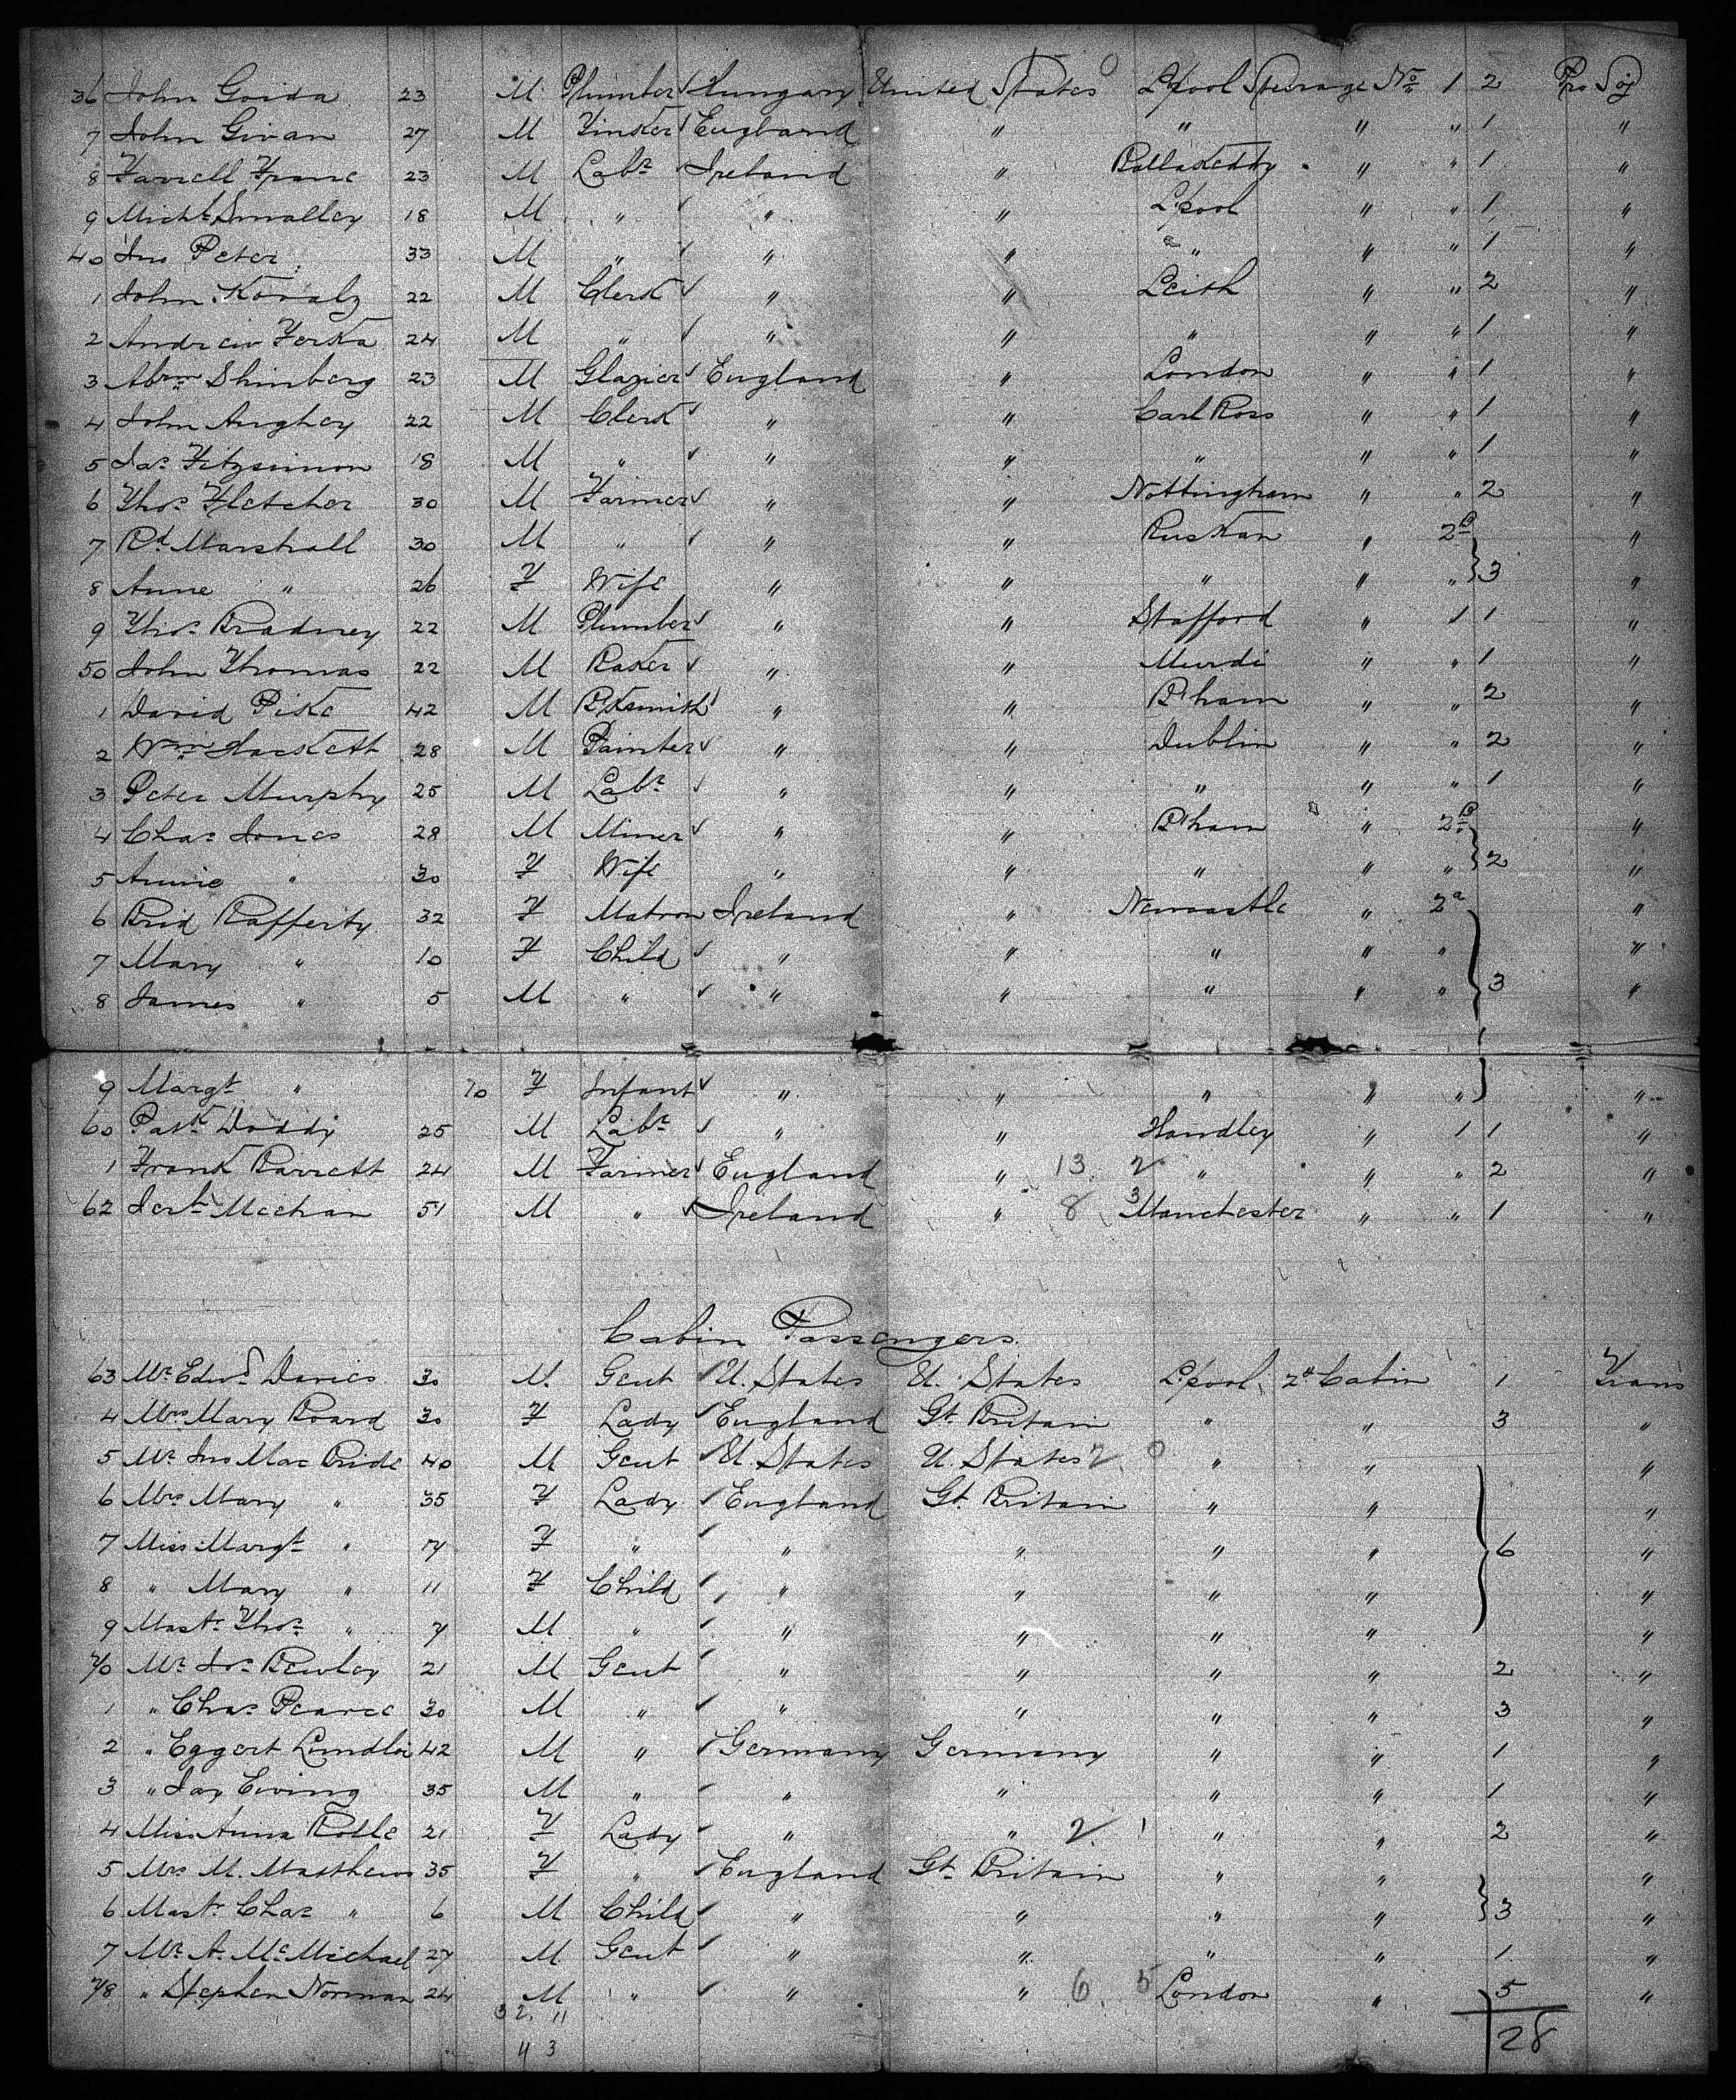 36 John Goida 23 M Plumber Hungary United States 0 L'pool Steerage No 1 2 Pro Soj
7 John Givan 27 M Tinker England " " " " 1 "
8 Farrell Franc 23 M Labr Ireland " " " 1 "
9 Michl Smalley 18 M " " " L'pool " " 1 "
40 Jno Peter 33 M " " " " " " 1 "
1 John Kovalz 22 M Clerk " " Leith " " 2 "
2 Andrew Ferka 24 M " " " " " " 1 "
3 Abrm Shinberg 23 M Glazier England " London " " 1 "
4 John Anghey 22 M Clerk " " Carl Ross " " 1 "
5 Jas Fitzsimon 18 M " " " " " " 1 "
6 Thos Fletcher 30 M Farmer " " Nottingham " " 2 "
7 Rd Marshall 30 M " " " Ruskan " 2B "
8 Anne " 26 F Wife " " " " " 3 "
9 Thos Bradney 22 M Plumber " " Stafford " 1 1 "
50 John Thomas 22 M Baker " " Murdi " " 1 "
1 David Pike 42 M Bksmith " " B'ham " " 2 "
2 Wm Hackett 28 M Painter " " Dublin " " 2 "
3 Peter Murphy 25 M Labr " " " " " 1 "
4 Chas Jones 28 M Miner " " B'ham " 2B "
5 Annie " 30 F Wife " " " " " 2 "
6 Brid Rafferty 32 F Matron Ireland " Newcastle " 2a "
7 Mary " 10 F Child " " " " " "
8 James " 5 M " " " " " " 3 "
9 Margt " 10 F Infant " " " " " "
60 Patk Doddy 25 M Labr " " Handley " 1 1 "
1 Frank Barrett 24 M Farmer England " 13 2 " " " 2 "
62 Jerh Mechan 51 M " Ireland " 8 3 Manchester " " 1 "
Cabin Passengers.
63 Mr Edwd Davies 30 M. Gent U. States U. States L'pool 2d Cabin 1 Trans
4 Mrs Mary Board 30 F Lady England Gt Britain " " 3 "
5 Mr Jno Mac Bride 40 M Gent U. States U. States 2 0 " " "
6 Mrs Mary " 35 F Lady England Gt Britain " " "
7 Miss Margt " 14 F " " " " " 6 "
8 " Mary " 11 F Child " " " " "
9 Mastr Thos " 7 M " " " " " "
70 Mr Jos Bewley 21 M Gent " " " " 2 "
1 " Chas Pearce 30 M " " " " " 3 "
2 " Eggert 42 M " Germany Germany " " 1 "
3 " Jas Ewing 35 M " " " " " 1 "
4 Miss Anna Rolle 21 F Lady " " 2 1 " " 2 "
5 Mrs M. Matthews 35 F " England Gt Britain " " "
6 Mastr Chas " 6 M Child " " " " 3 "
7 Mr A. McMichael 27 M. Gent " " " " 1 "
78 " Stephen Norman 24 M " " " 6 5 London " 5 "
32. 11
4 3
28